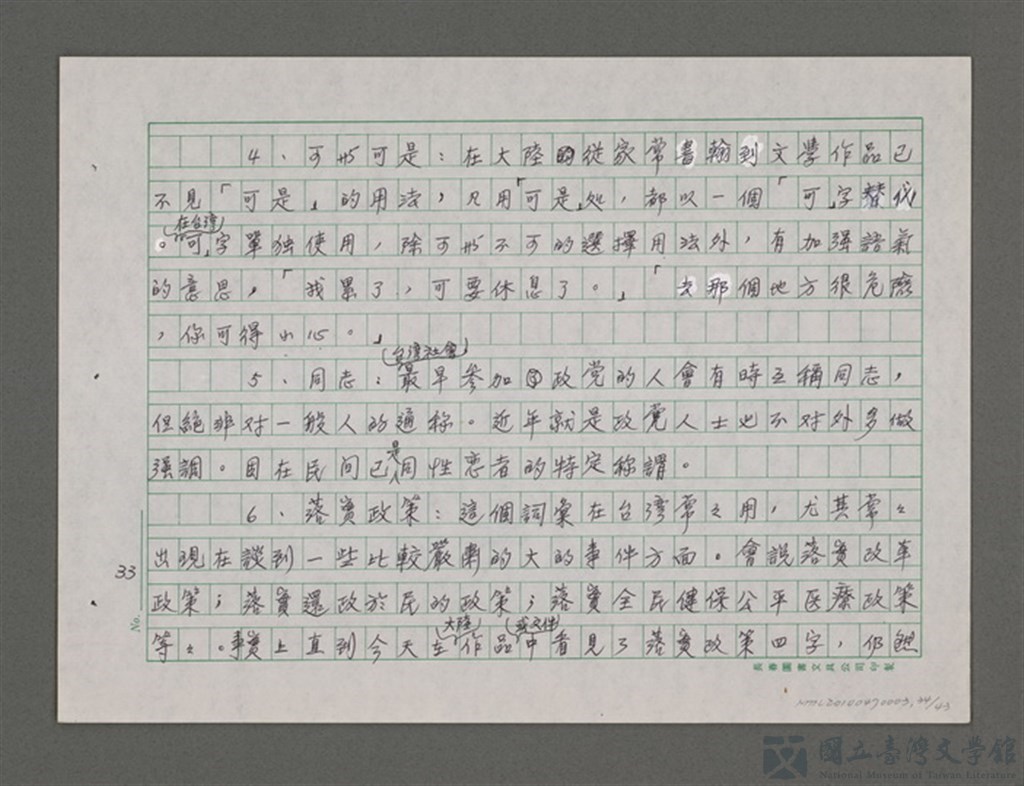 4、可州可是：在大陸的從家常書翰到文學作品已
不見「可是」的用法，凡用「可是」处，都以一個「可」字替代
在台湾
。「可」字單独使用，除可州不可的選擇用法外，有加强語氣
的意思，「我累了，可要休息了。」「去那個地方很危險
，你可得小心。」
台湾社會
5、同志：最早参加政党的人會有時互稱同志，
但絕非对一般人的通称。近年就是政党人士也不对外多做
强調。因在民间已是同性恋者的特定称謂。
6、落實政策：這個詞彙在台湾常々用，尤其常々
出現在談到一些比較嚴肅的大的事件方面。會說落實改革
政策；落實還政於民的政策；落實全民健保公平医療政策
等々。事實上直到今天在大陸作品或文件中看見了落實政策四字，仍然
33
No.
長春圖書文具公司印製
NML20100460003,34/43
國立臺灣文學館
National Museum of Taiwan Literature